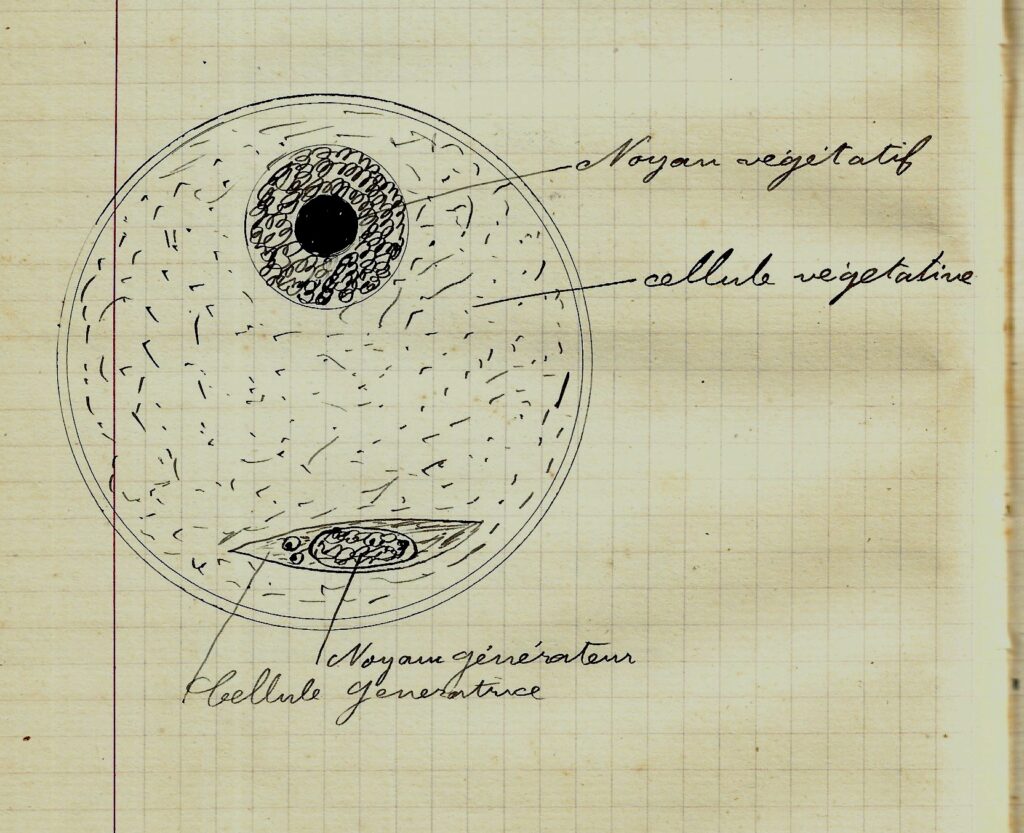 Noyau végétatif
cellule végétative
Noyau générateur
Cellule generatrice